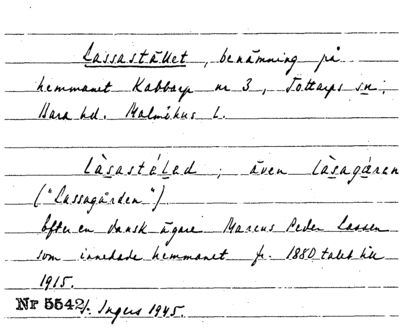 Lassastället, benämning på
hemmanet Kabbarp nr 3, Tottarps sn,
Bara hd. Malmöhus l.
låsastäled; även låsagåren
("Lassagården")
Efter en dansk ägare Marcus Peder Lassen
som innehade hemmanet fr. 1880 talet till
1915.
Nr 5542 I. Ingers 1945.